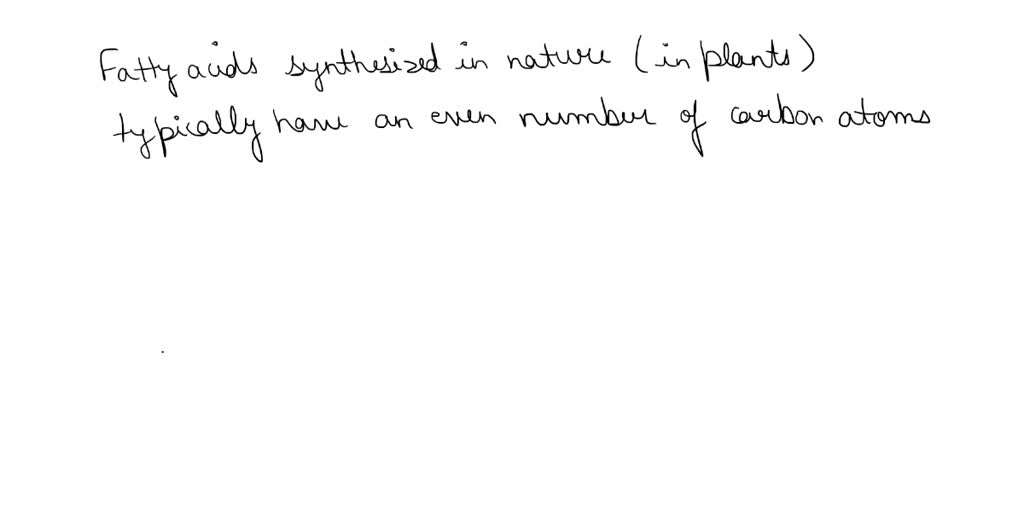 Fatty acids synthesized in nature (in plants)
typically have an even number of carbon atoms